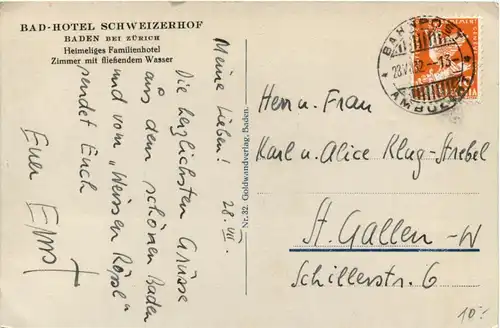 BAD-HOTEL SCHWEIZERHOF
BADEN BEI ZÜRICH
Heimeliges Familienhotel
Zimmer mit fließendem Wasser
28. VII.
Meine Lieben!
Die herzlichsten Grüsse
aus dem schönen Baden
und vom „Weissen Rössl"
sendet Euch
Euer Ernst
Nr. 32. Goldwandverlag, Baden.
BAHNPOST
AMBULANT
Herrn u. Frau
Karl u. Alice Klug-Strebel
St. Gallen-W
Schillerstr. 6
10.-